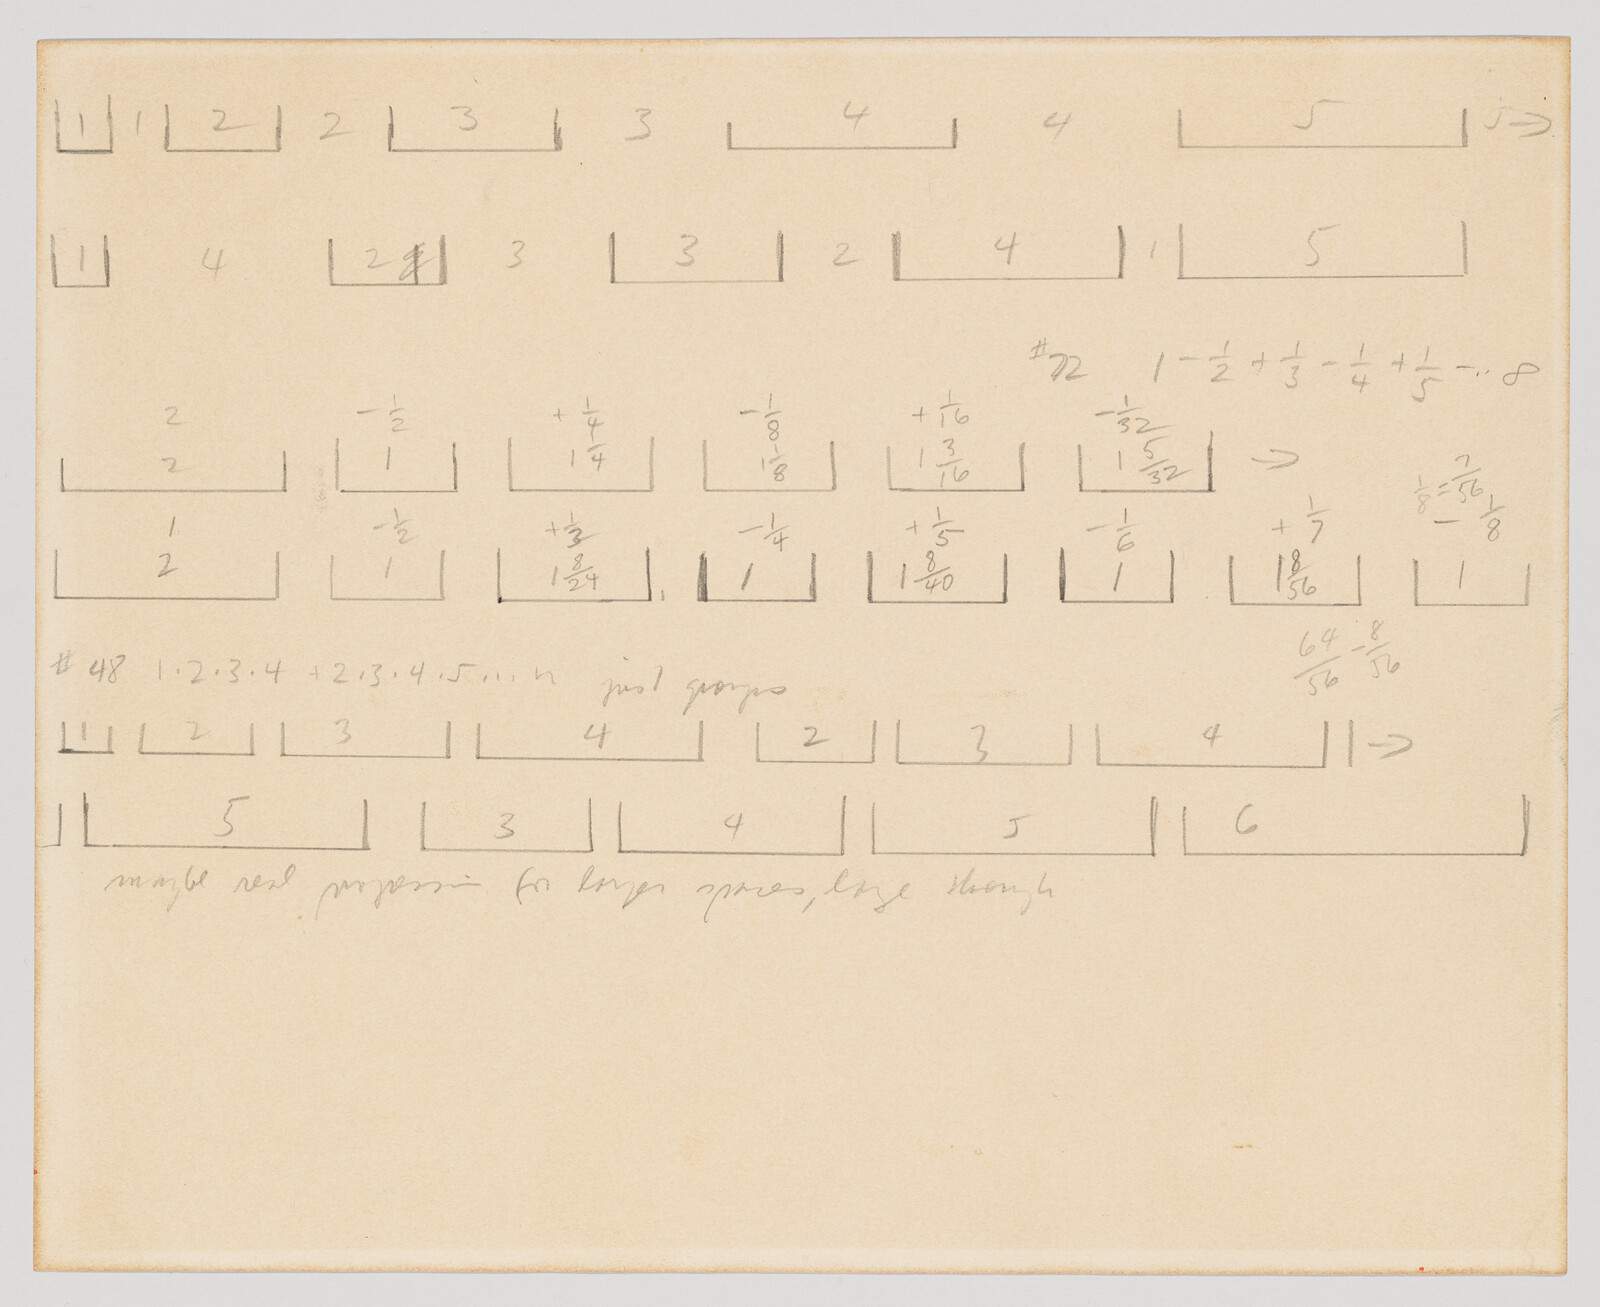 1 1 2 2 3 3 4 4 5 5→
1 4 2 3 3 2 4 1 5
#72 1 - 1/2 + 1/3 - 1/4 + 1/5 -·· ∞
2 -1/2 +1/4 -1/8 +1/16 -1/32
2 1 1 1/4 1 1/8 1 3/16 1 5/32 →
1/8 = 7/56
1 -1/2 +1/3 -1/4 +1/5 -1/6 +1/7 -1/8
2 1 1 8/24 1 1 8/40 1 1 8/56 1
64/56 - 8/56
# 48 1·2·3·4 + 2·3·4·5 ··· n just groups
1 2 3 4 2 3 4 →
5 3 4 5 6
maybe for larger spaces, large though